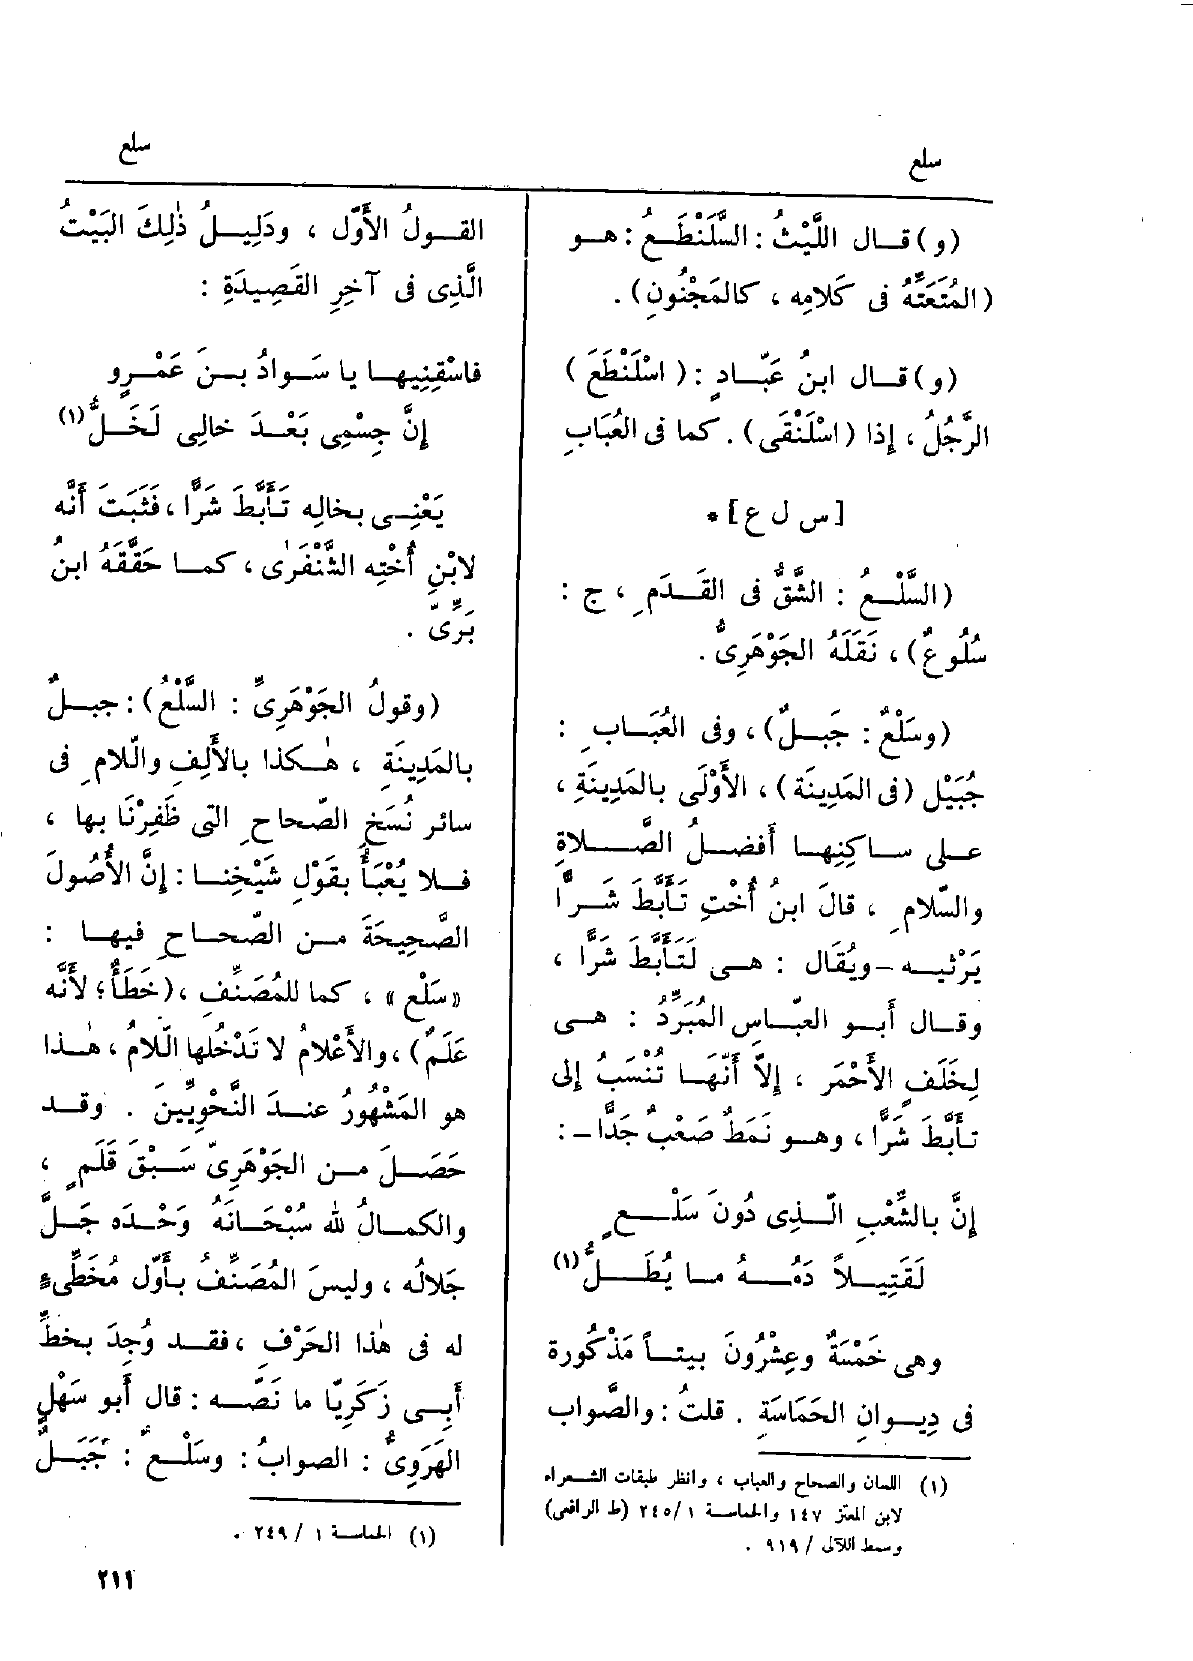 سلع
سلع
(و) قـال اللَّيْثُ : السَّلَنْطَـعُ : هـو
(المُتَعَتِّهُ فى كَلامِه ، كالمَجْنُونِ) .
(و) قـال ابنُ عَبّـادٍ : (اسْلَنْطَعَ)
الرَّجُلُ ، إذا (اسْلَنْقَى) . كما فى العُبَابِ
[س ل ع] *
(السَّلْـعُ : الشَّقُّ فى القَـدَمِ ، ج :
سُلُوعٌ) ، نَقَلَهُ الجَوْهَرِىُّ .
(وسَلْعٌ : جَبـلٌ) ، وفى العُبَـابِ :
جُبَيْل (فى المَدِينَة) ، الأَوْلَى بالمَدِينَةِ ،
عـلى سـاكِنِهـا أَفضـلُ الصَّـلاةِ
والسّلامِ ، قالَ ابنُ أُخْتِ تَـأَبَّطَ شَـرًّا
يَرْثيـه - ويُقَال : هـى لَتَأَبَّطَ شَرًّا ،
وقـال أَبـو العبّـاسِ المُبَرِّدُ : هـى
لِخَلَفٍ الأَحْمَر ، إِلاّ أَنَّهَـا تُنْسَبُ إِلى
تـأَبَّطَ شَرًّا ، وهـو نَمَطٌ صَعْبٌ جَدًّا - :
إِنَّ بالشِّعْبِ الَّـذِى دُونَ سَلْـعٍ
لَقَتِيـلاً دَمُـهُ مـا يُطَـلُّ (١)
وهى خَمْسَةٌ وعِشْرُونَ بيتـاً مَذْكُورة
فى دِيـوانِ الحَمَاسَةِ . قلتُ : والصَّواب
(١) اللسان والصحاح والعباب ، وانظر طبقات الشـعراء
لابن المعتز ١٤٧ والحماسة ١ /٢٤٥ (ط الرافعى)
وسمط اللآلى / ٩١٩ .
القـولُ الأَوّل ، ودَلِيـلُ ذٰلِكَ البَيْتُ
الَّذِى فى آخِرِ القَصِيدَةِ :
فاسْقِنِيهـا يا سَـوادُ بـنَ عَمْـرٍو
إِنَّ جِسْمِى بَعْـدَ خالِى لَخَـلُّ (١)
يَعْنِـى بخالِه تَـأَبَّطَ شَرًّا ، فَثَبَتَ أَنَّه
لابْنِ أُخْتِه الشَّنْفَرَى ، كمـا حَقَّقَهُ ابنُ
بَرِّىّ .
(وقولُ الجَوْهَرِىِّ : السَّلْعُ) : جبـلٌ
بالمَدِينَةِ ، هٰـكذا بالأَلِفِ والّلامِ فى
سائر نُسَخِ الصّحاحِ التى ظَفِرْنَا بها ،
فـلا يُعْبَأُ بقَوْلِ شَيْخِنـا : إِنَّ الأُصُولَ
الصَّحِيحَةَ مـن الصّحـاحِ فيهـا :
«سَلْع» ، كما للمُصَنِّفِ ، (خَطَأٌ ؛ لأَنَّه
عَلَمٌ) ، والأَعْلامُ لا تَدْخُلها الّلامُ ، هٰـذا
هو المَشْهُورُ عنـدَ النَّحْوِيِّينَ . وقـد
حَصَـلَ مـن الجَوْهَرِىّ سَـبْقَ قَلَمٍ ،
والكمـالُ للهِ سُبْحَـانَهُ وَحْـدَه جَـلَّ
جَلالُه ، وليسَ المُصَنِّفُ بـأَوّل مُخَطِّىءٍ
له فى هٰذا الحَرْفِ ، فقـد وُجِدَ بخطِّ
أَبـى زَكَرِيّا ما نَصّـه : قال أَبو سَهْلٍ
الهَرَوِىُّ : الصوابُ : وسَلْـعٌ : جَبَـلٌ
(١) الحماسـة ١ /٢٤٩ .
٢١١